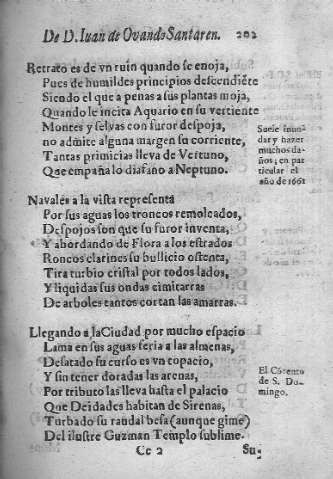 De D. Iuan de Ovando Santaren. 202
Retrato es de vn ruin quando se enoja,
Pues de humildes principios descendiēte
Siendo el que a penas a sus plantas moja,
Quando le incita Aquario en su vertiente
Montes y selvas con furor despoja,
no admite alguna margen su corriente,
Tantas primicias lleva de Vertuno,
Que empaña lo diafano a Neptuno.
Suele inun-
dar y hazer
muchos da-
ños; en par
ticular el
año de 1661
Navales a la vista representa
Por sus aguas los troncos remolcados,
Despojos son que su furor inventa,
Y abordando de Flora a los estrados
Roncos clarines su bullicio ostenta,
Tira turbio cristal por todos lados,
Y liquidas sus ondas cimitarras
De arboles tantos cortan las amarras.
Llegando a la Ciudad por mucho espacio
Lama en sus aguas feria a las almenas,
Desatado su curso es vn topacio,
Y sin tener doradas las arenas,
Por tributo las lleva hasta el palacio
Que Deidades habitan de Sirenas,
Turbado su raudal besa (aunque gime)
Del ilustre Guzman Templo sublime.
El Cōvento
de S. Do-
mingo.
Cc 2 Su-